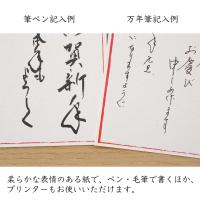 筆ペン記入例
万年筆記入例
賀新年
お慶び
申しあげます
柔らかな表情のある紙で、ペン・毛筆で書くほか、
プリンターもお使いいただけます。